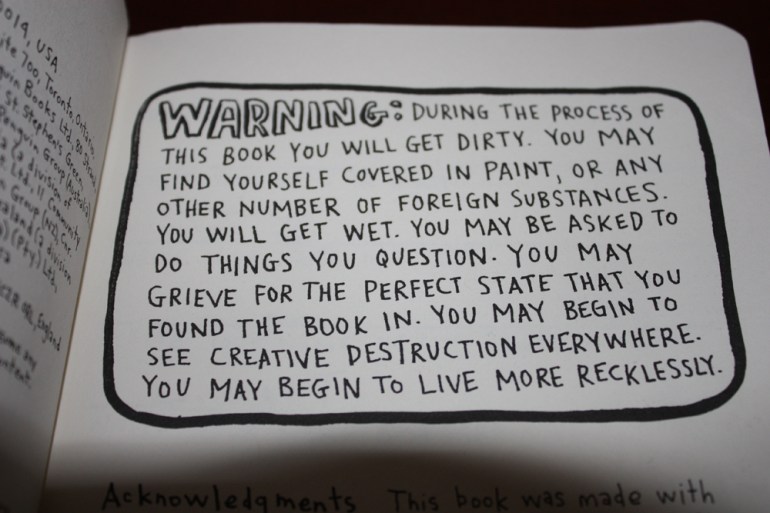 0014, USA
ite 700, Toronto, Ontario
guin Books Ltd, 80 Strand
St. Stephen's Green
Penguin Group (Australia)
a division of
Ltd, 11 Community
Group (NZ), Cnr.
ealand (a division
(Pty) Ltd,
England
WARNING: DURING THE PROCESS OF
THIS BOOK YOU WILL GET DIRTY. YOU MAY
FIND YOURSELF COVERED IN PAINT, OR ANY
OTHER NUMBER OF FOREIGN SUBSTANCES.
YOU WILL GET WET. YOU MAY BE ASKED TO
DO THINGS YOU QUESTION. YOU MAY
GRIEVE FOR THE PERFECT STATE THAT YOU
FOUND THE BOOK IN. YOU MAY BEGIN TO
SEE CREATIVE DESTRUCTION EVERYWHERE.
YOU MAY BEGIN TO LIVE MORE RECKLESSLY.
Acknowledgments This book was made with